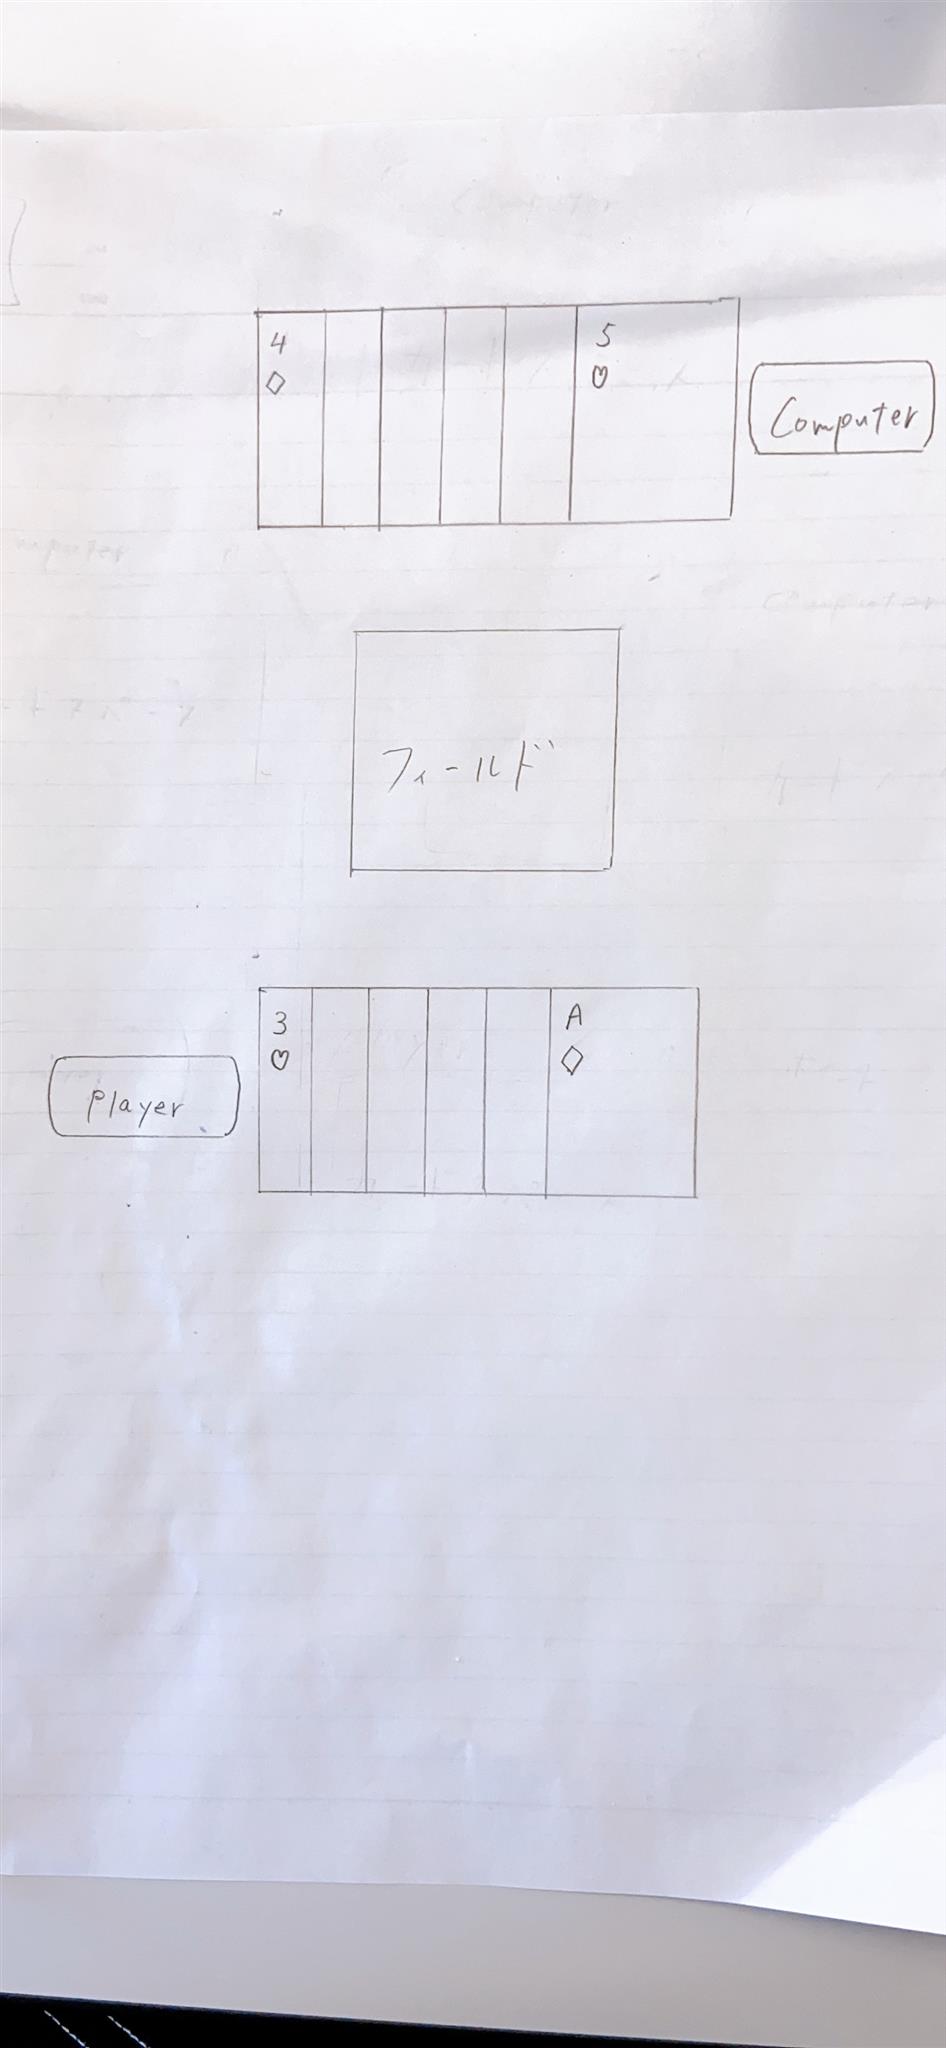 4
♢
5
♡
Computer
フィールド
3
♡
A
♢
Player